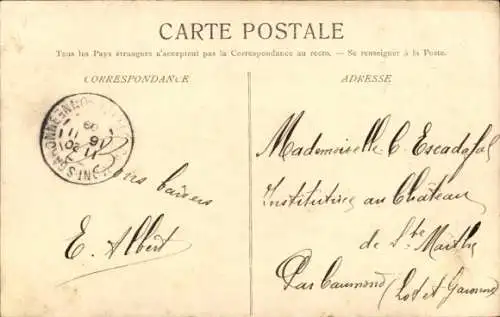 CARTE POSTALE
Tous les Pays étrangers n'acceptent pas la Correspondance au recto. — Se renseigner à la Poste.
CORRESPONDANCE
ADRESSE
Bons baisers
E. Albert
Mademoiselle C. Escadafal
Institutrice au Château
de Ste Marthe
Par Caumont (Lot et Garonne)